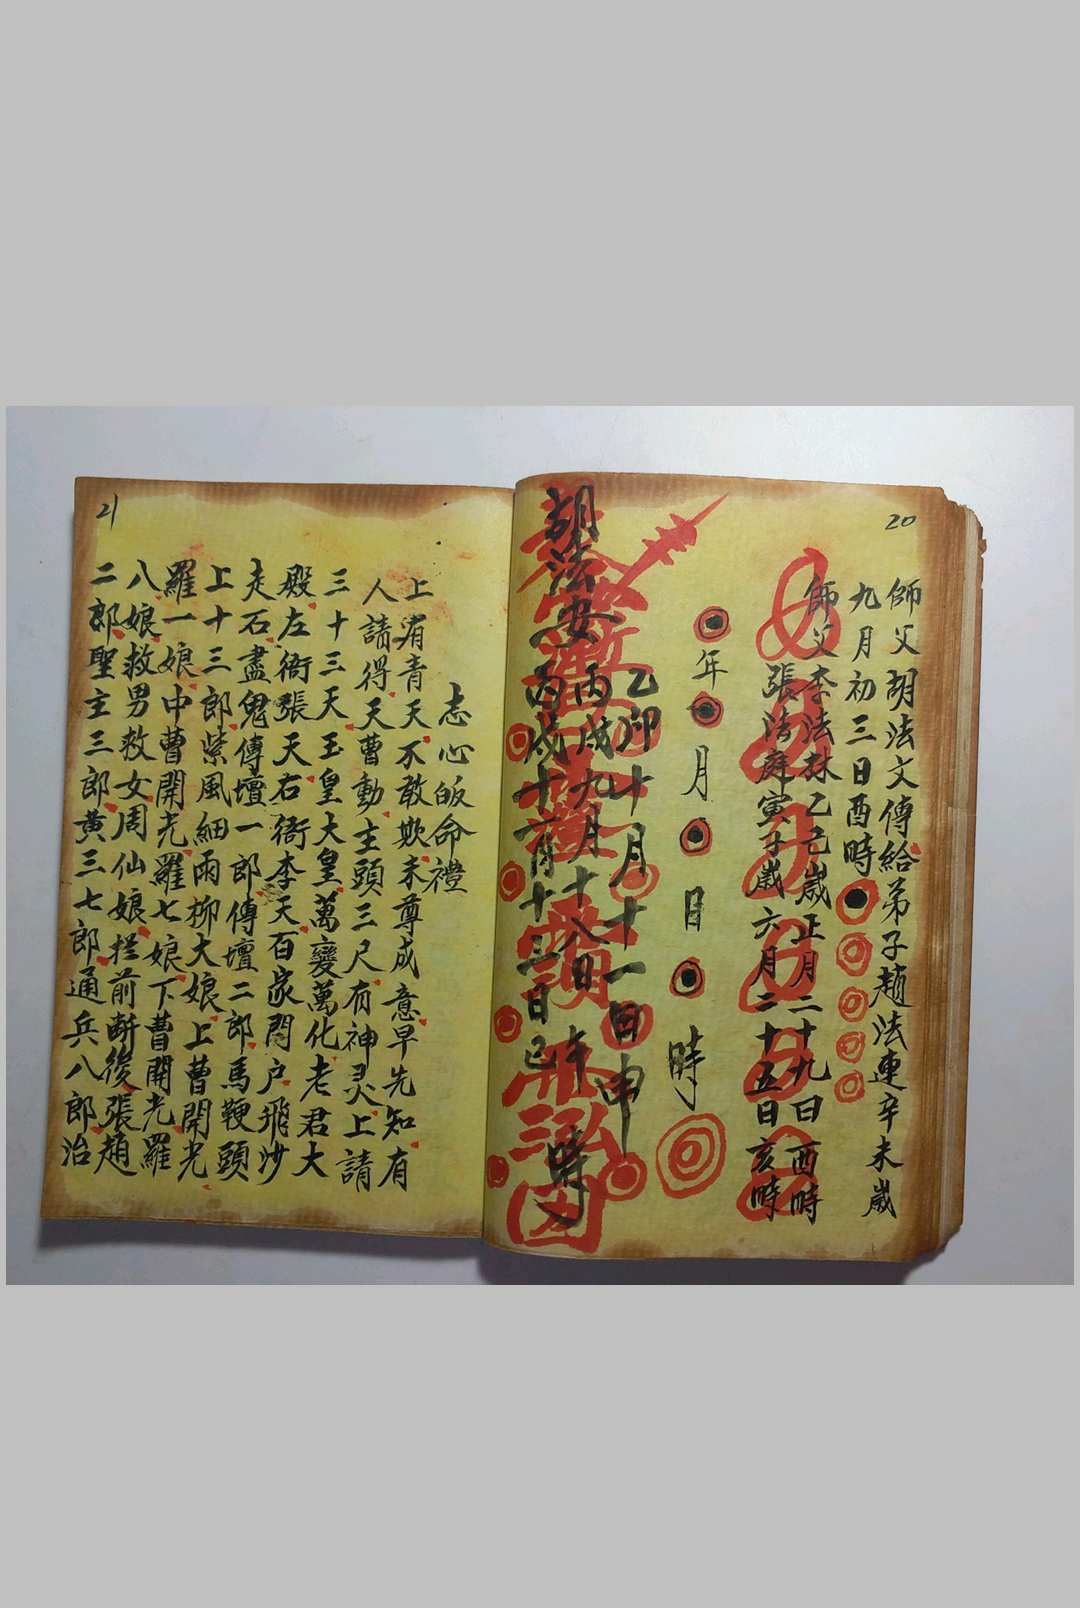 20
師父胡法文傳給弟子趙法連辛未歲
九月初三日酉時
師父李法林乙巳歲正月二十九日酉時
張法庭寅子歲六月二十五日亥時
年月日時
乙卯十月十一日申
丙戌九月十八日午時
胡法安丙戌十一月十三日巳
21
志心皈命禮
上有青天不敢欺未尊成意早先知有
人請得天曹動主頭三尺有神灵上請
三十三天玉皇大皇萬變萬化老君大
殿左衙張天右衙李天百家門户飛沙
走石盡鬼傳壇一郎傳壇二郎馬鞭頭
上十三郎紫風細雨柳大娘上曹開光
羅一娘中曹開光羅七娘下曹開光羅
八娘救男救女周仙娘拦前斬後張趙
二郎聖主三郎黄三七郎通兵八郎治